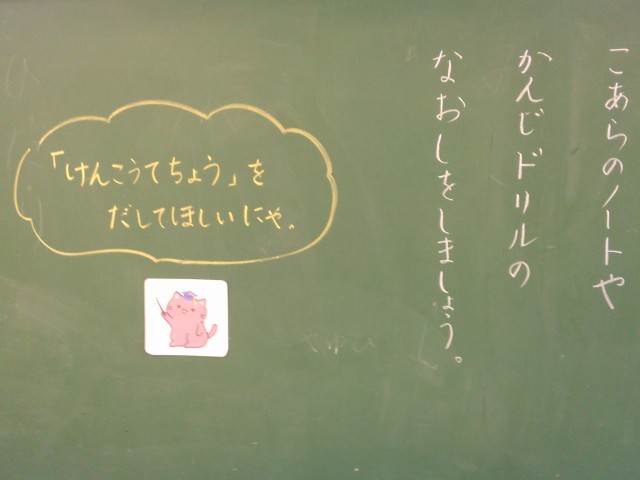 こあらのノートや
かんじドリルの
なおしをしましょう。
「けんこうてちょう」を
だしてほしいにゃ。